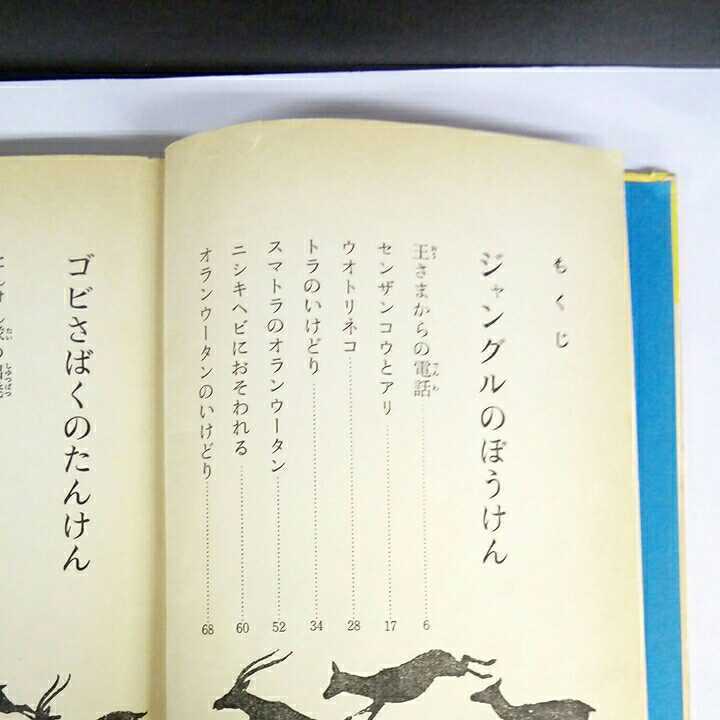 もくじ
ジャングルのぼうけん
王さまからの電話 6
センザンコウとアリ 17
ウオトリネコ 28
トラのいけどり 34
スマトラのオランウータン 52
ニシキヘビにおそわれる 60
オランウータンのいけどり 68
ゴビさばくのたんけん